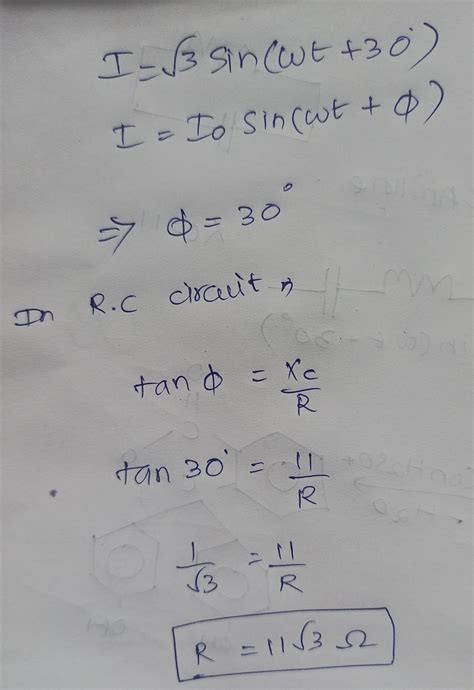 I = √3 sin(ωt + 30°)
I = I0 sin(ωt + φ)
⇒ φ = 30°
In R.C circuit ⇒
tan φ = Xc/R
tan 30° = 11/R
1/√3 = 11/R
R = 11√3 Ω